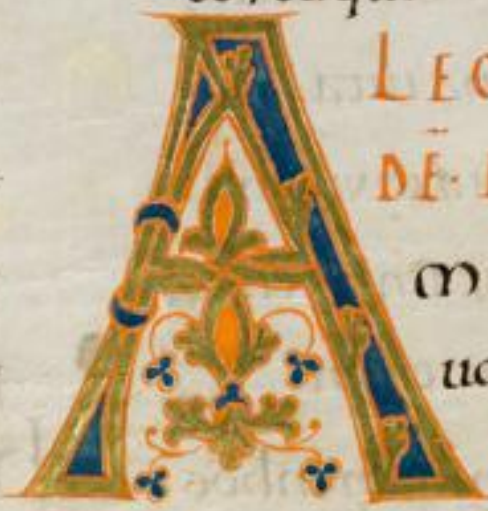 A
LEC
DĒ.
m
ua